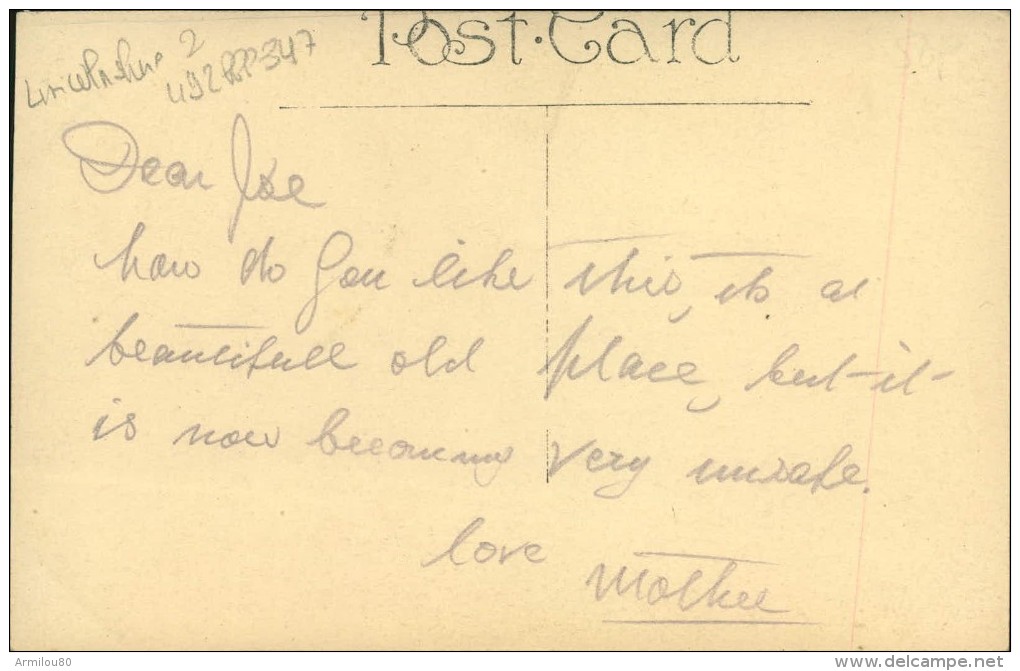 Post Card
Lincolnshire 2
Dear Joe
how do you like this, its a
beautifull old place, but it
is now becoming very unsafe.
love
Mother
Armilou80
delcampe.net